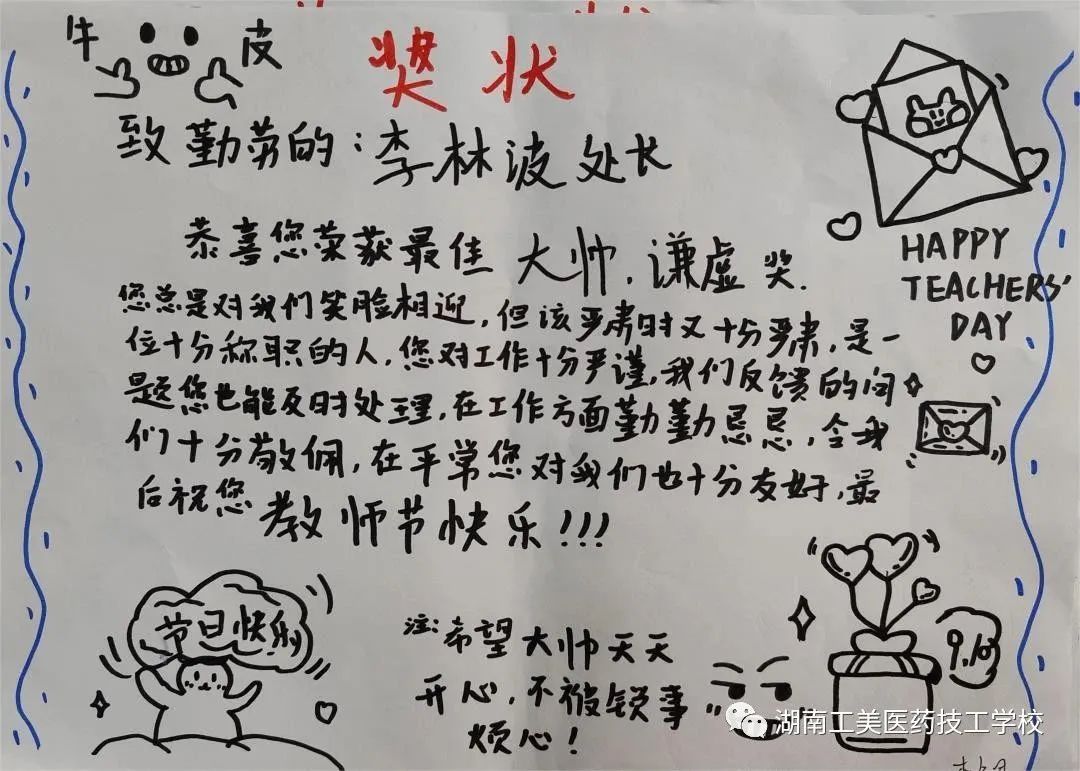 牛 皮
奖状
致勤劳的:李林波处长
恭喜您荣获最佳 大帅,谦虚奖.
您总是对我们笑脸相迎,但该严肃时又十分严肃,是一
位十分称职的人,您对工作十分严谨,我们反馈的问
题您也能及时处理,在工作方面勤勤恳恳,令我
们十分敬佩,在平常您对我们也十分友好,最
后祝您 教师节快乐!!!
HAPPY
TEACHERS'
DAY
节日快乐
注:希望大帅天天
开心,不被锁事
烦心!
9.10
湖南工美医药技工学校